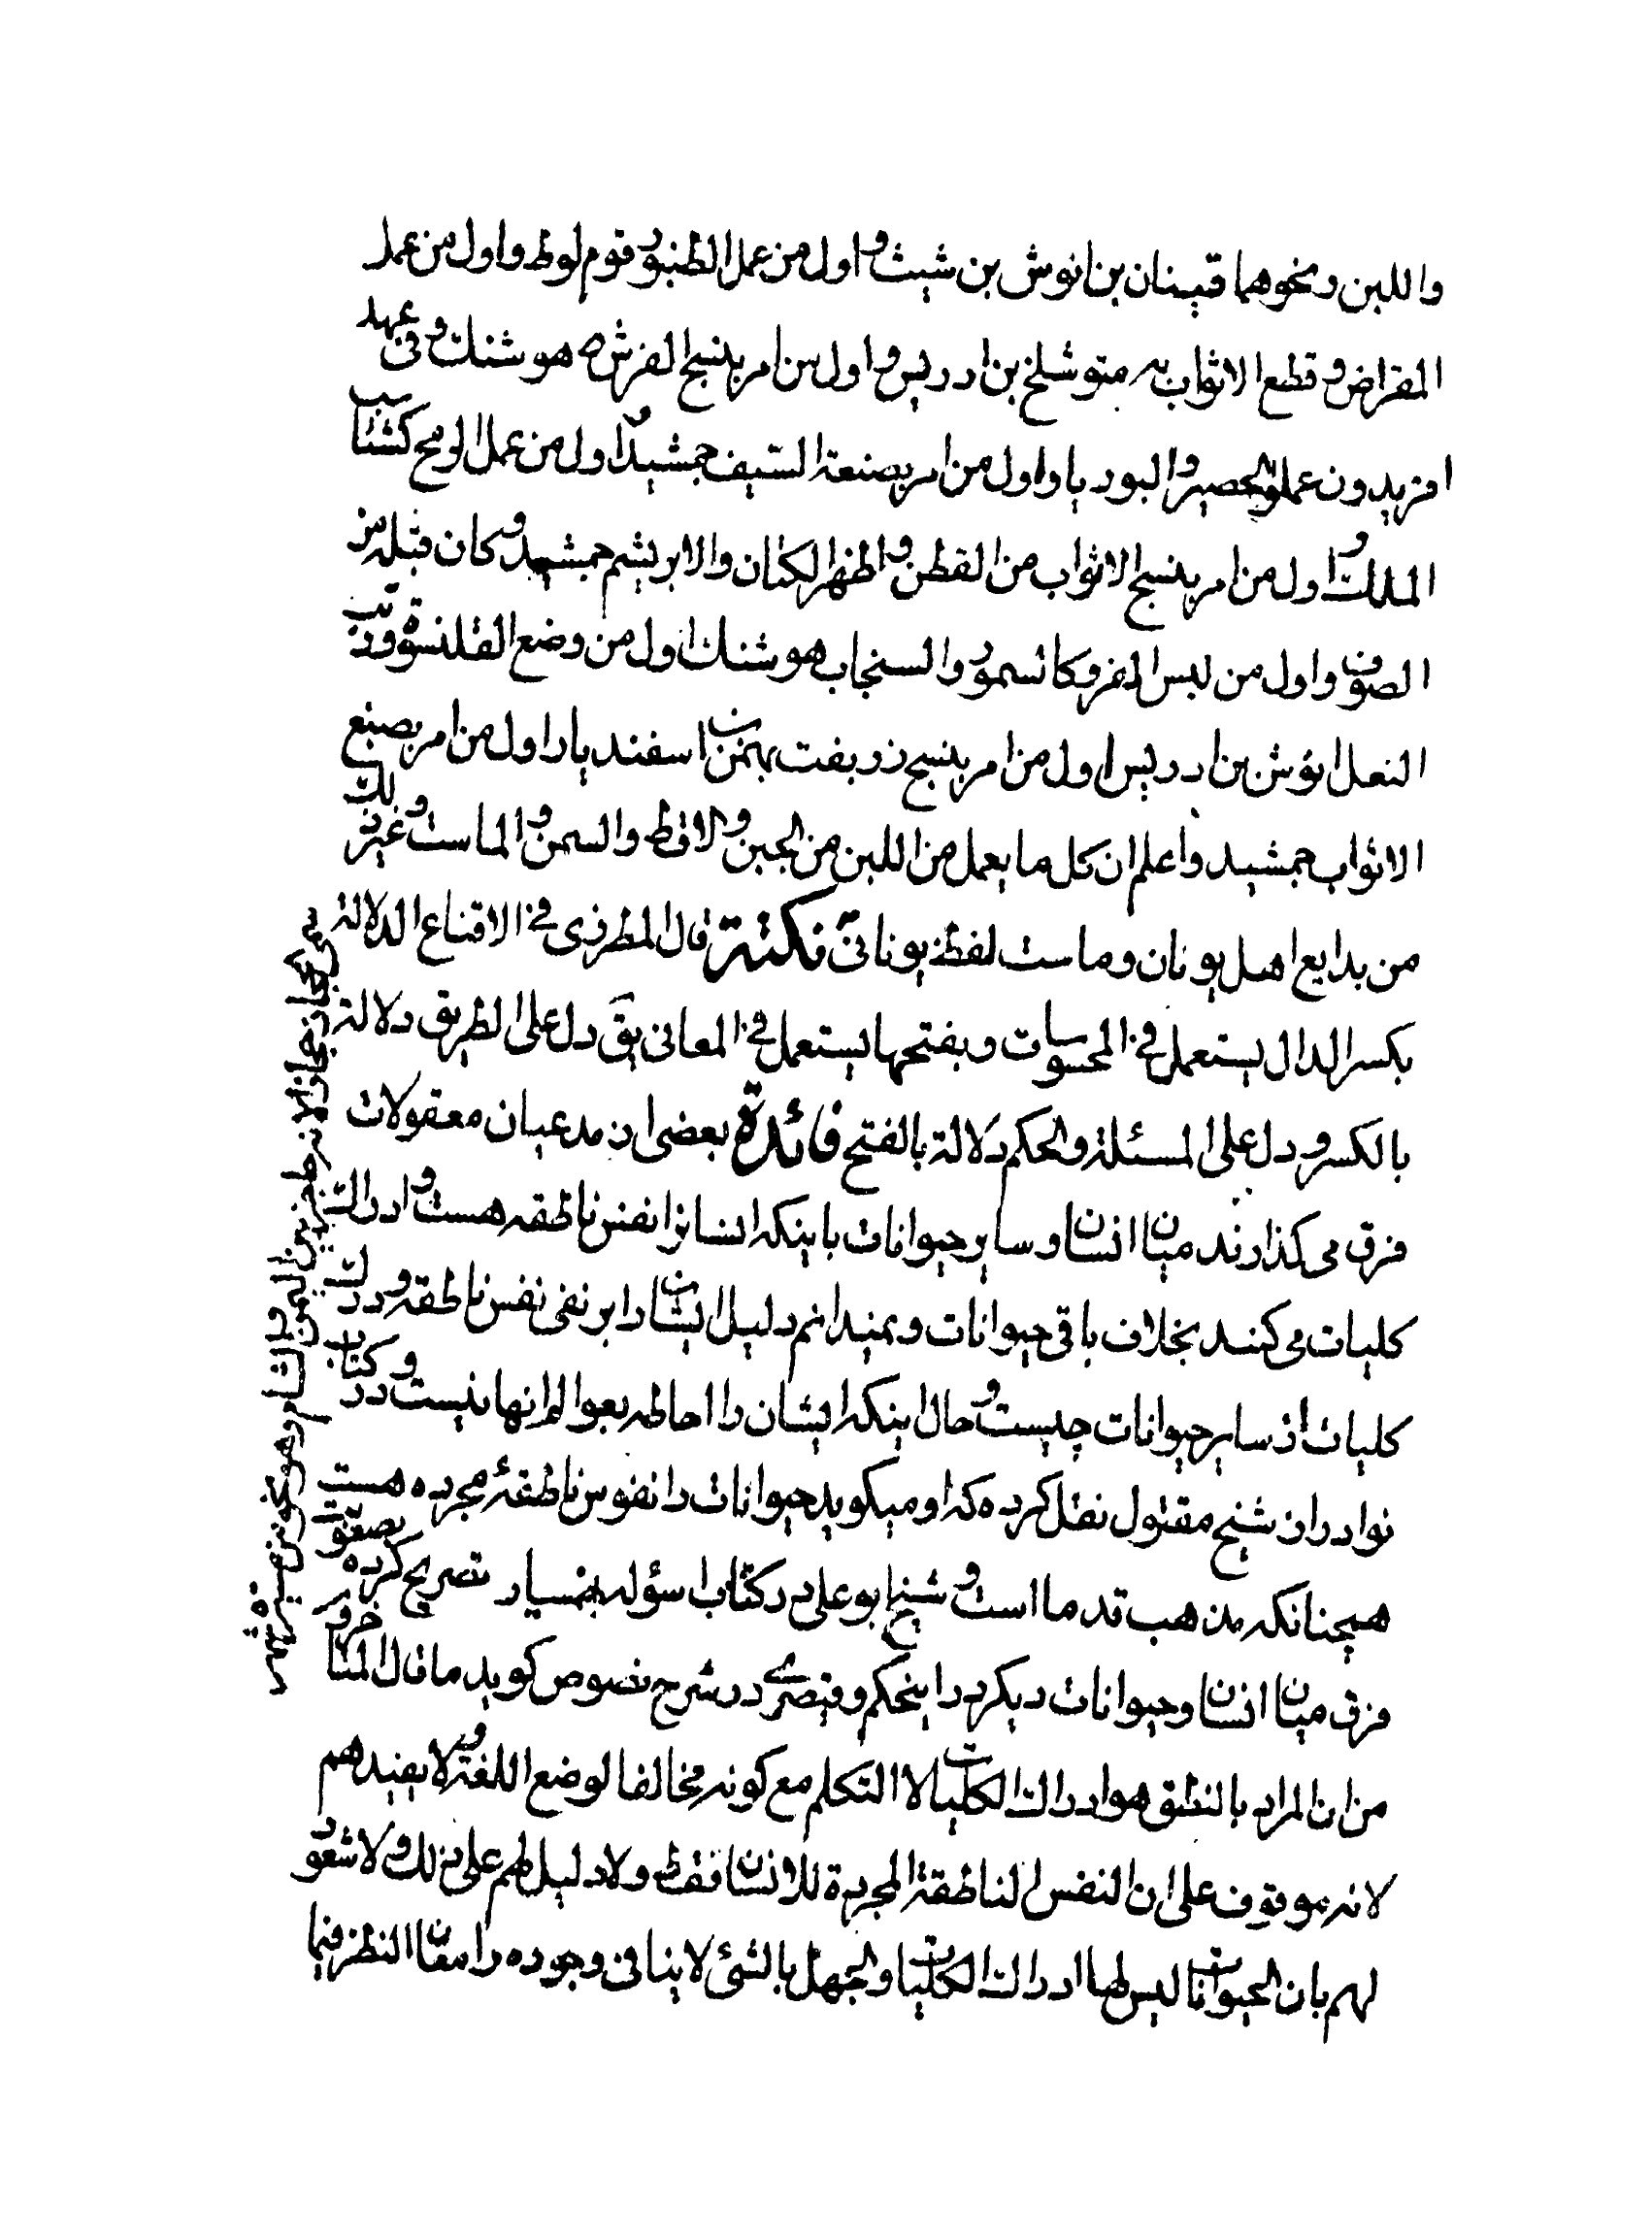 واللبن ونحوهما قینان بن انوش بن شیث و اول من عمل الطنبور قوم لوط و اول من عمل
المقراض و قطع الاثواب به متوشلخ بن ادریس و اول من امر بنسج الفرش هوشنك و فی عهد
افریدون عملوا الحصیر و البوریا و اول من امر بصنعة السیف جمشید و اول من عمل الرمح کشتاسب
الملك و اول من امر بنسج الاثواب من القطن و اظهر الکتان والابریشم جمشید و کان قبله من
الصوف و اول من لبس الفرو کالسمور والسنجاب هوشنك اول من وضع القلنسوة ورتب
النعل انوش بن ادریس اول من امر بنسج زربفت بهمن بن اسفندیار اول من امر بصبغ
الاثواب جمشید واعلم ان کل ما یعمل من اللبن من الجبن و الاقط والسمن و الماست و غیر ذلك
من بدایع اهل یونان وماست لفظ یونانی نکتة قال المطرزی فی الاقناع الدلالة
بکسر الدال یستعمل فی المحسوسات وبفتحها یستعمل فی المعانی یق دل علی الطریق دلالة
بالکسر و دل علی المسئلة والحکم دلالة بالفتح فائدة بعضی از مدعیان معقولات
فرق می کذارند میان انسان و سایر حیوانات باینکه انسانرا نفس ناطقه هست و ادراك
کلیات می کنند بخلاف باقی حیوانات و نمیدانم دلیل ایشان را بر نفی نفس ناطقه و درك
کلیات از سایر حیوانات چیست و حال اینکه ایشان را احاطه بعوالم انها نیست و در کتاب
نوادر از شیخ مقتول نقل کرده که او میکوید حیوانات را نفوس ناطقهٔ مجرده هست
همچنانکه مذهب قدما است و شیخ ابو علی در کتاب اسؤله بهمنیار تصریح کرده بصعوبت
فرق میان انسان و حیوانات دیکر در اینحکم و قیصری در شرح فصوص کوید ما قال المتاخرون
من ان المراد بالنطق هو ادراك الکلیات لا التکلم مع کونه مخالفا لوضع اللغة و لا یفیدهم
لانه موقوف علی ان النفس الناطقة المجردة للانسان فقط ولا دلیل لهم علی ذلك و لا شعور
لهم بان الحیوانات لیس لها ادراك الکلیات والجهل بالشئ لا ینافی وجوده و امعان النظر فیما